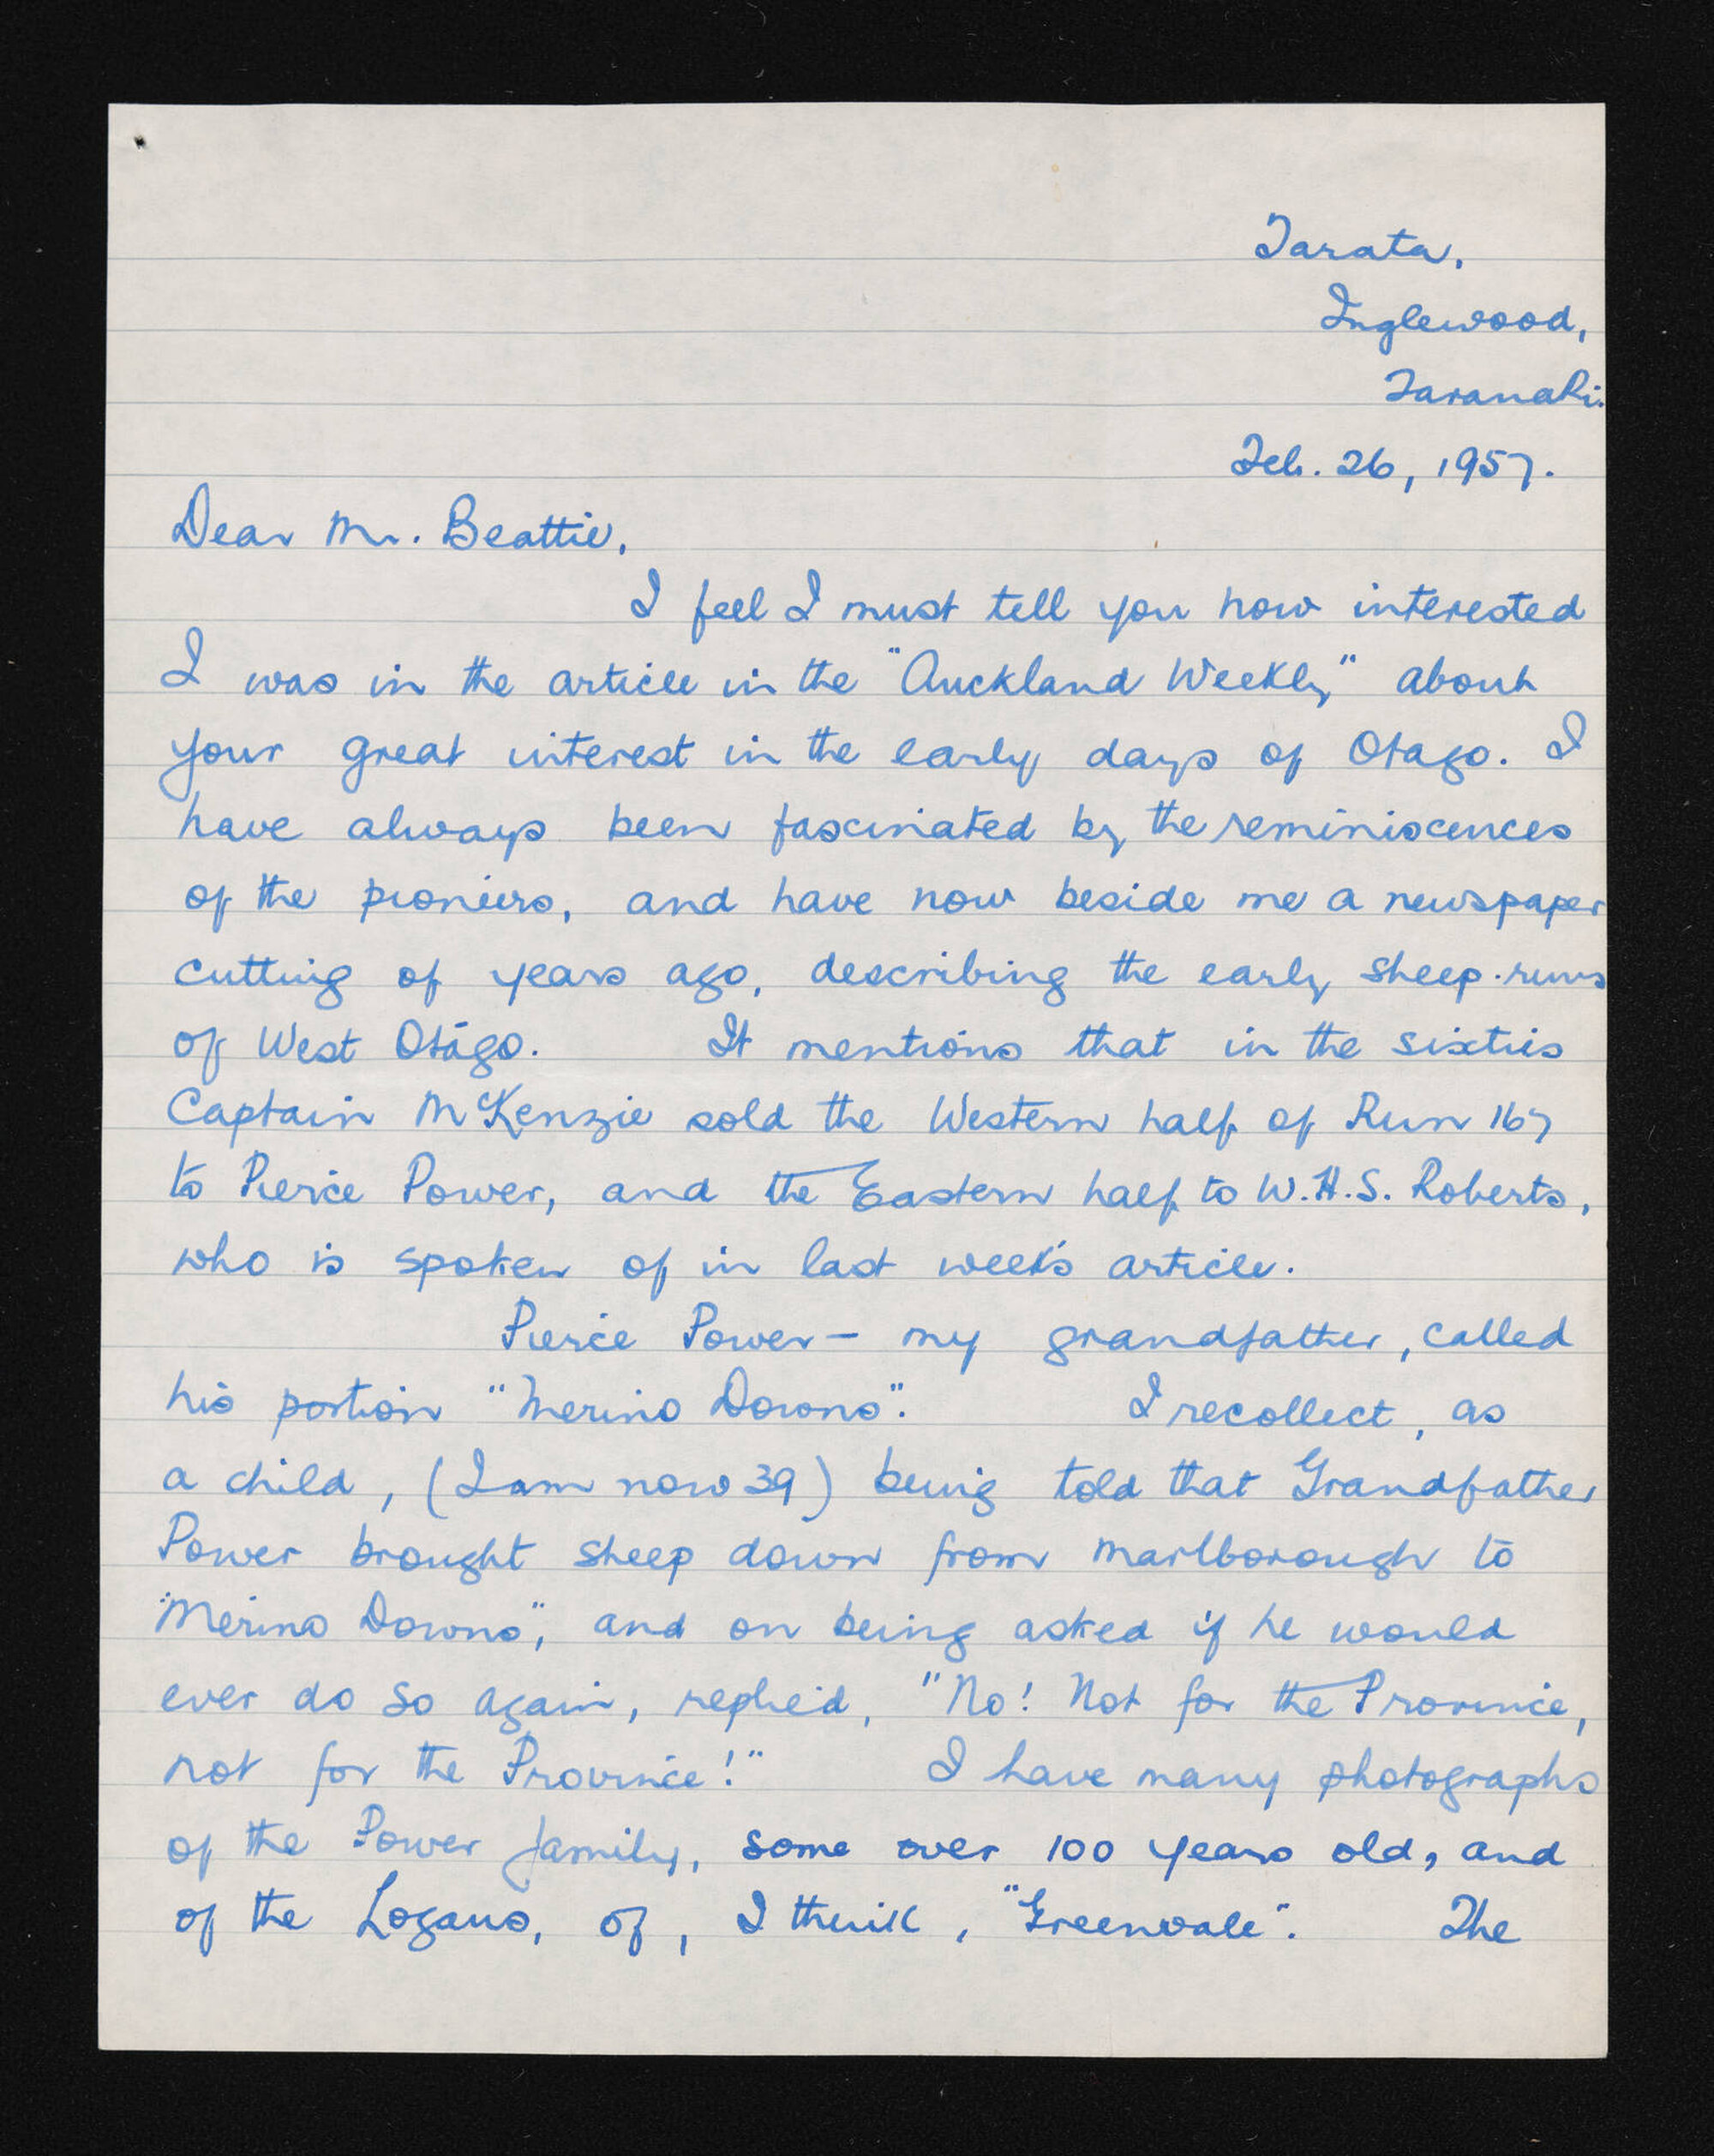 Tarata,
Inglewood,
Taranaki.
Feb. 26, 1957.
Dear Mr. Beattie,
I feel I must tell you how interested
I was in the article in the "Auckland Weekly" about
your great interest in the early days of Otago. I
have always been fascinated by the reminiscences
of the pioneers, and have now beside me a newspaper
cutting of years ago, describing the early sheep-runs
of West Otago. It mentions that in the sixties
Captain McKenzie sold the Western half of Run 167
to Pierce Power, and the Eastern half to W.H.S. Roberts,
who is spoken of in last week's article.
Pierce Power - my grandfather, called
his portion "Merino Downs". I recollect, as
a child, (I am now 39) being told that Grandfather
Power brought sheep down from Marlborough to
"Merino Downs", and on being asked if he would
ever do so again, replied, "No! Not for the Province,
not for the Province!" I have many photographs
of the Power family, some over 100 years old, and
of the Logans, of, I think, "Greenvale". The